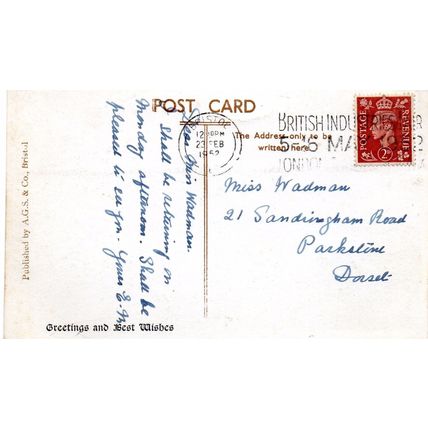 POST CARD
BRISTOL
12 PM
23 FEB
1952
BRITISH INDUSTRIES
5-16 MAY
LONDON
POSTAGE
REVENUE
2D
The Address only to be
written here
Dear Miss Wadman.
I Shall be returning on
Monday afternoon. Shall be
pleased to see you - Yours E.
Miss Wadman
21 Sandringham Road
Parkstone
Dorset
Published by A.G.S. & Co., Bristol
Greetings and Best Wishes